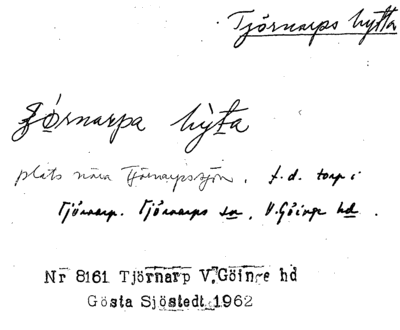 Tjörnarps hytta
hỳta
plats nära Tjörnarpssjön, f.d. torp i
Tjörnarp. Tjörnarps sn, V. Göinge hd.
Nr 8161 Tjörnarp V. Göinge hd
Gösta Sjöstedt 1962